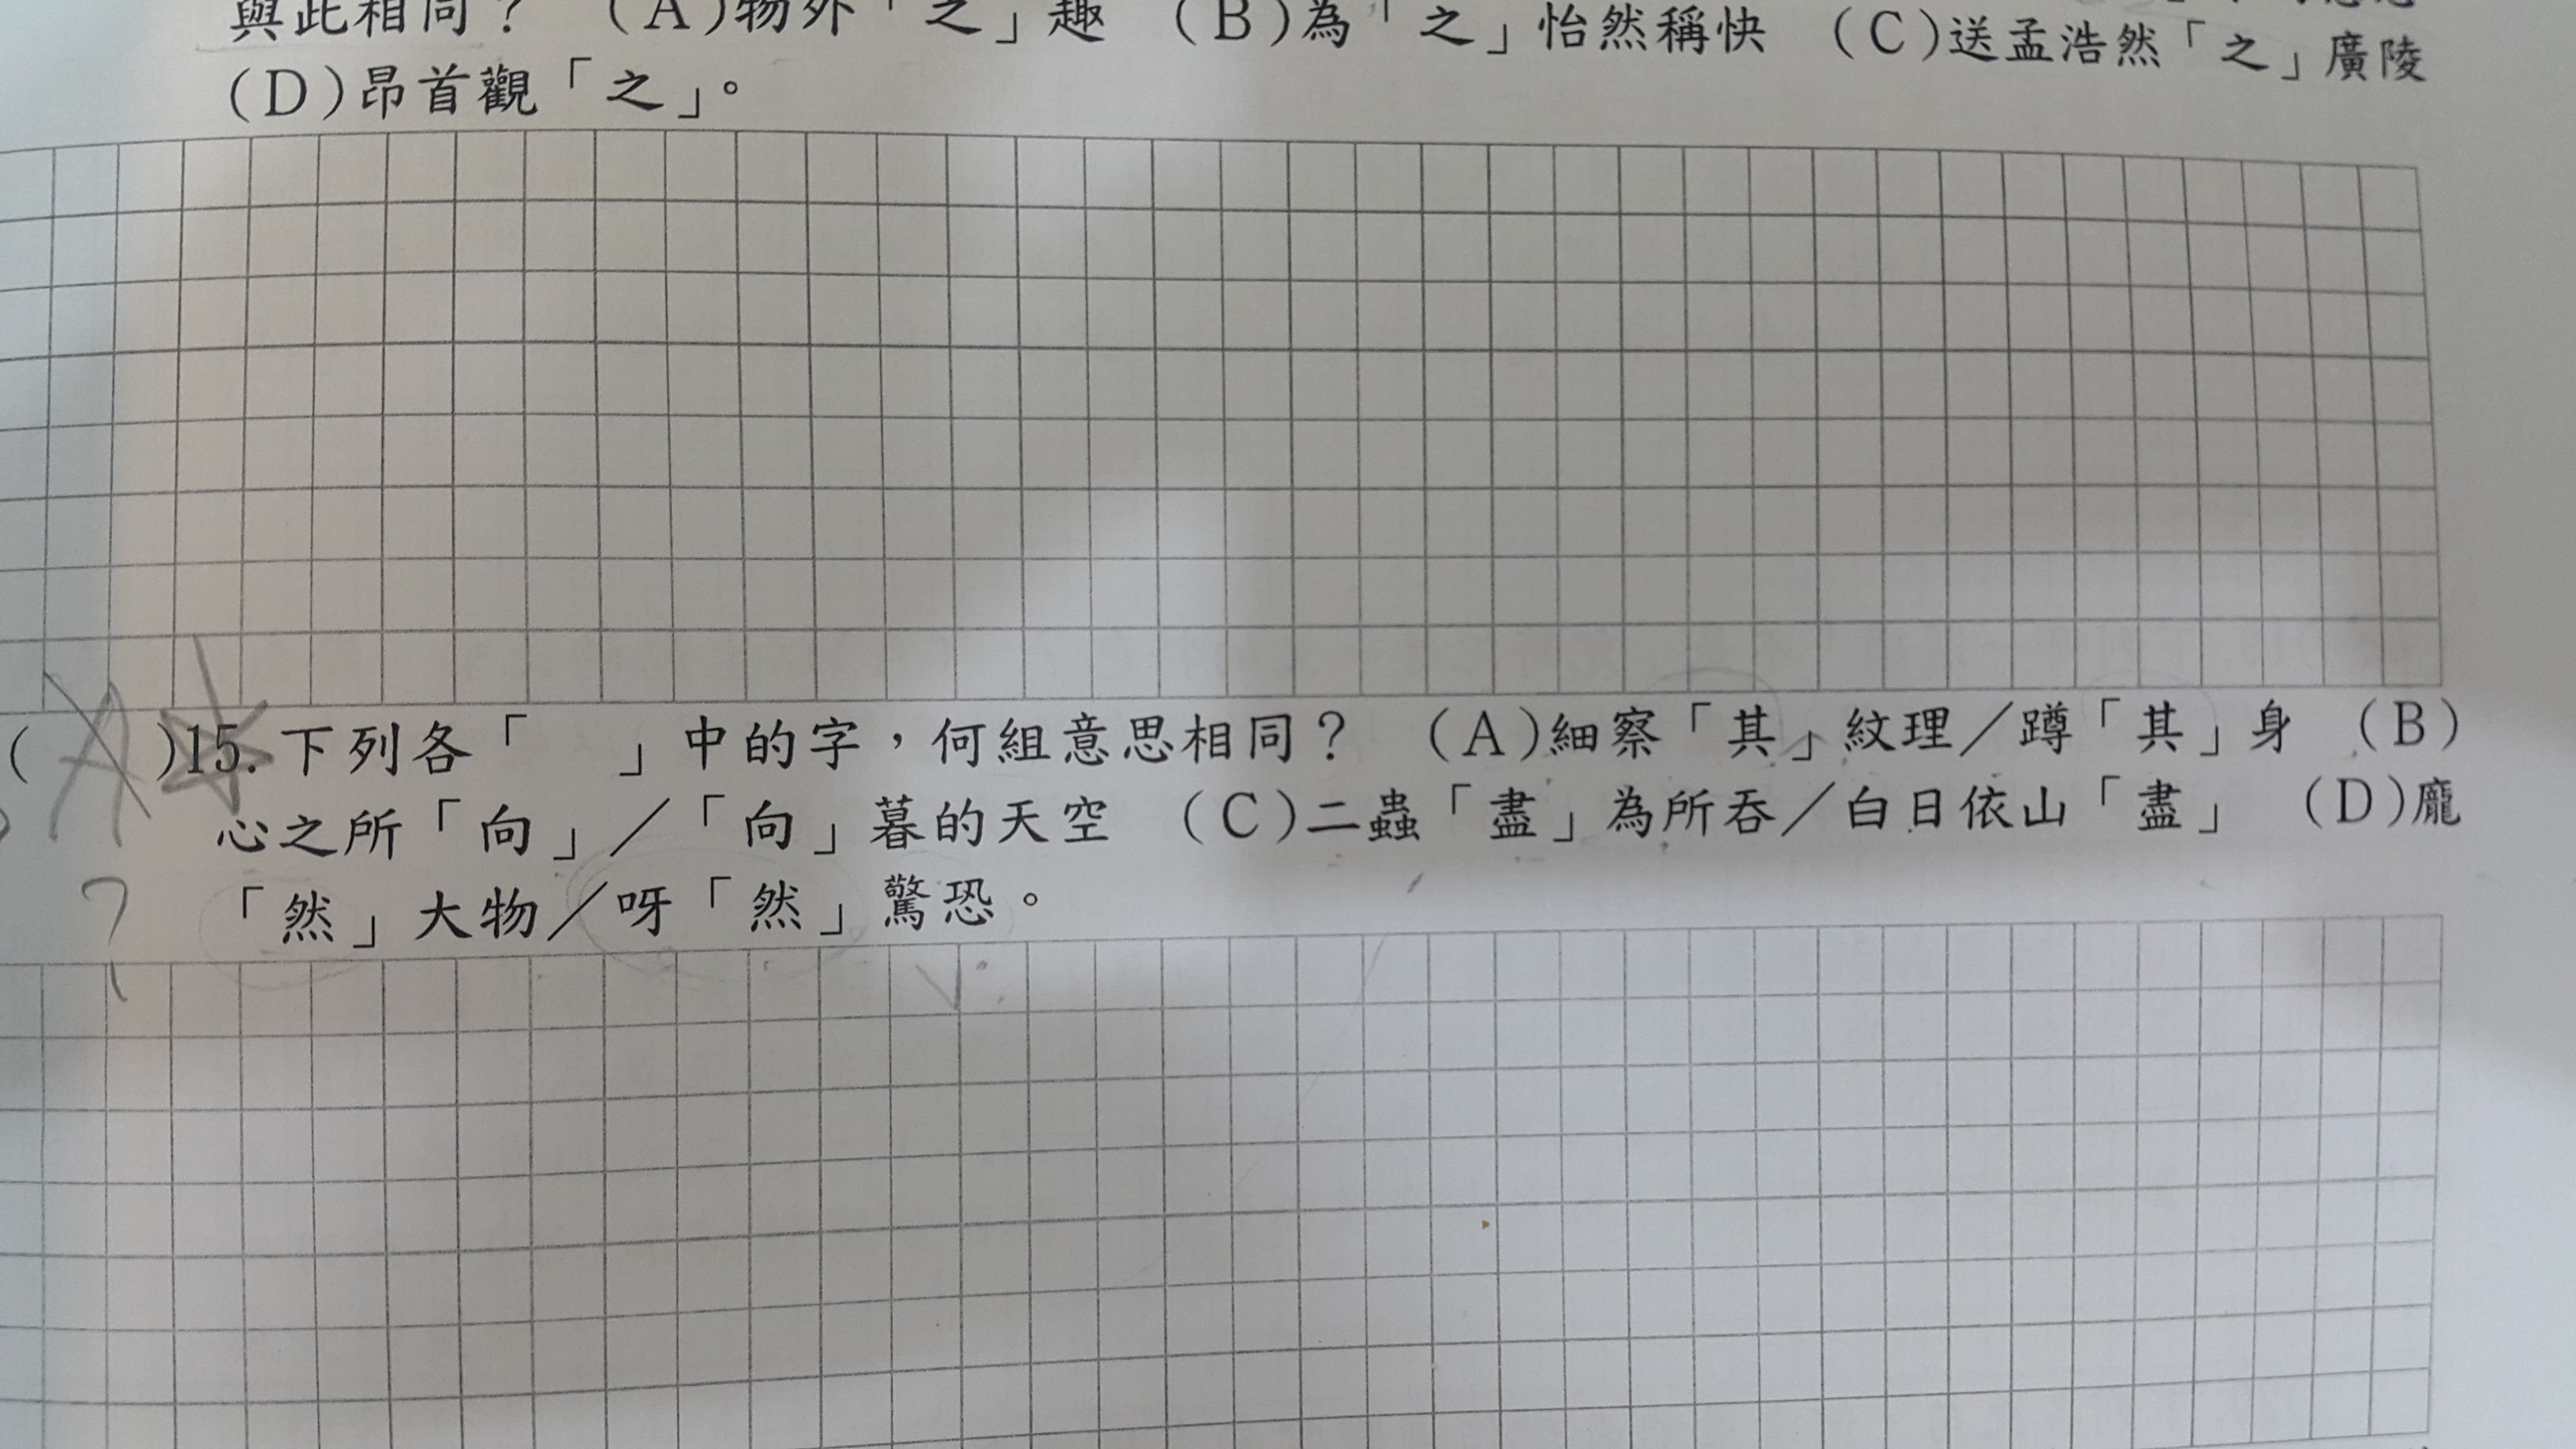 與此相同？　（A）物外「之」趣　（B）為「之」怡然稱快　（C）送孟浩然「之」廣陵
（D）昂首觀「之」。
(　A　)15.下列各「　　」中的字，何組意思相同？　（A）細察「其」紋理／蹲「其」身　（B）
心之所「向」／「向」暮的天空　（C）二蟲「盡」為所吞／白日依山「盡」　（D）龐
「然」大物／呀「然」驚恐。
?